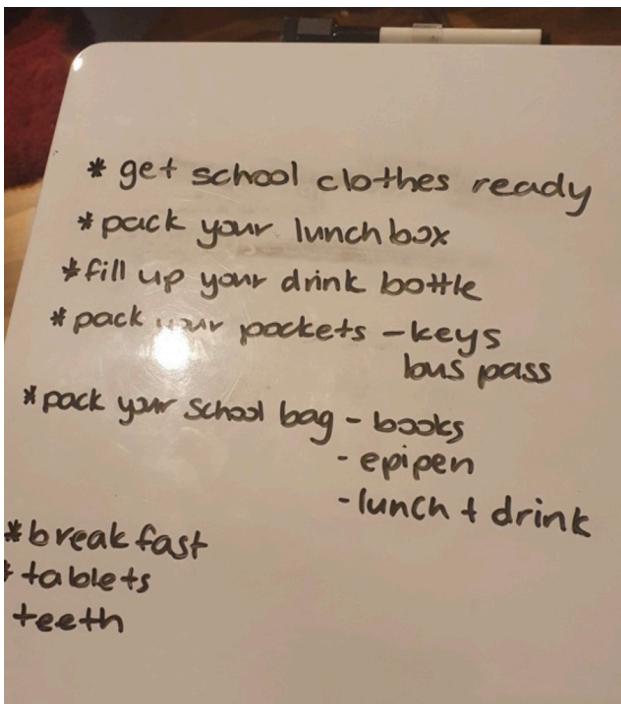 * get school clothes ready
* pack your lunchbox
* fill up your drink bottle
* pack your pockets - keys
bus pass
* pack your school bag - books
- epipen
- lunch + drink
* breakfast
* tablets
teeth